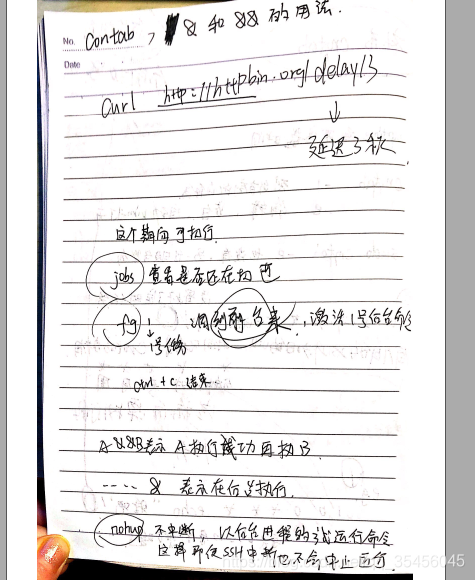 No. Contab, & 和 && 的用法.
Date
Curl http://httpbin.org/delay/3
↓
延迟3秒.
这个期间可执行.
jobs 查看是否还在
fg 1 调到前台来, 激活1号后台命令
↓
1号任务
ctrl + c 结束.
A&&B表示 A执行成功再执B
---- & 表示在后台执行.
nohup 不中断, 以后台进程的 运行命令
这样即使SSH中断也不会中止运行.
35456045